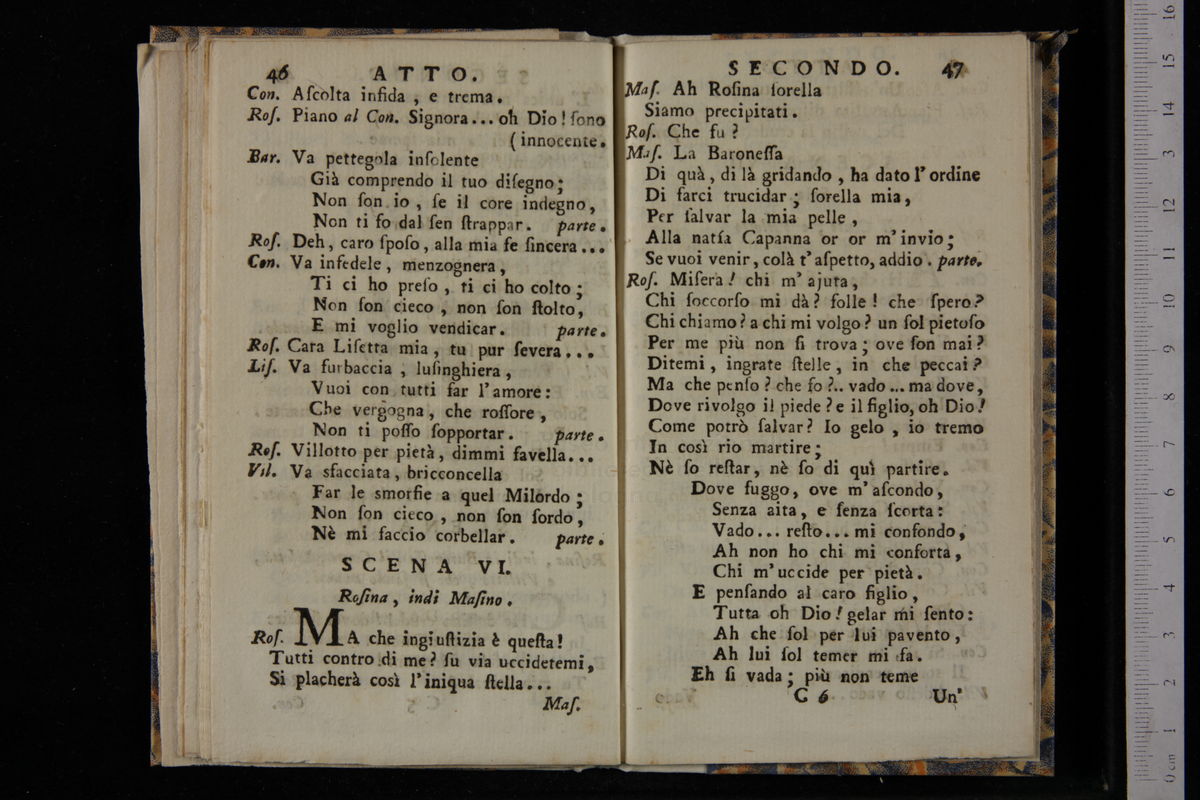 46 ATTO.
Con. Aſcolta infida, e trema.
Roſ. Piano al Con. Signora... oh Dio! ſono
(innocente.
Bar. Va pettegola inſolente
Già comprendo il tuo diſegno;
Non ſon io, ſe il core indegno,
Non ti fo dal ſen ſtrappar. parte.
Roſ. Deh, caro ſpoſo, alla mia fe ſincera...
Con. Va infedele, menzognera,
Ti ci ho preſo, ti ci ho colto;
Non ſon cieco, non ſon ſtolto,
E mi voglio vendicar. parte.
Roſ. Cara Liſetta mia, tu pur ſevera...
Liſ. Va furbaccia, luſinghiera,
Vuoi con tutti far l'amore:
Che vergogna, che roſſore,
Non ti poſſo ſopportar. parte.
Roſ. Villotto per pietà, dimmi favella...
Vil. Va sfacciata, bricconcella
Far le smorfie a quel Milordo;
Non ſon cieco, non ſon ſordo,
Nè mi faccio corbellar. parte.
SCENA VI.
Roſina, indi Maſino.
Roſ. MA che ingiuſtizia è queſta!
Tutti contro di me? ſu via uccidetemi,
Si placherà così l'iniqua ſtella...
Maſ.
SECONDO. 47
Maſ. Ah Roſina ſorella
Siamo precipitati.
Roſ. Che fu?
Maſ. La Baroneſſa
Di quà, di là gridando, ha dato l'ordine
Di farci trucidar; ſorella mia,
Per ſalvar la mia pelle,
Alla natía Capanna or or m'invio;
Se vuoi venir, colà t'aſpetto, addio. parte.
Roſ. Miſera! chi m'ajuta,
Chi ſoccorſo mi dà? folle! che ſpero?
Chi chiamo? a chi mi volgo? un ſol pietoſo
Per me più non ſi trova; ove ſon mai?
Ditemi, ingrate ſtelle, in che peccai?
Ma che penſo? che fo?.. vado... ma dove,
Dove rivolgo il piede? e il figlio, oh Dio!
Come potrò ſalvar? Io gelo, io tremo
In così rio martire;
Nè ſo reſtar, nè ſo di quì partire.
Dove fuggo, ove m'aſcondo,
Senza aita, e ſenza ſcorta:
Vado... reſto... mi confondo,
Ah non ho chi mi conforta,
Chi m'uccide per pietà.
E penſando al caro figlio,
Tutta oh Dio! gelar mi ſento:
Ah che ſol per lui pavento,
Ah lui ſol temer mi fa.
Eh ſi vada; più non teme
C 6 Un'
0 cm 1 2 3 4 5 6 7 8 9 10 11 12 3 14 15 16